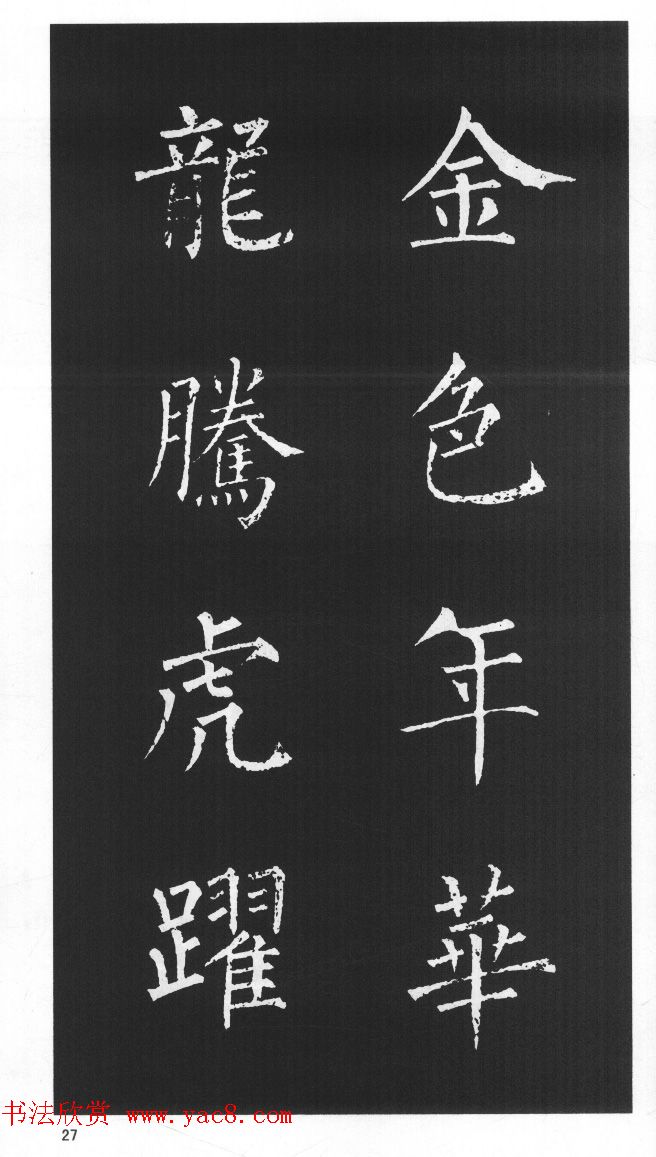 金色年華
龍騰虎躍
书法欣赏 www.yac8.com
27